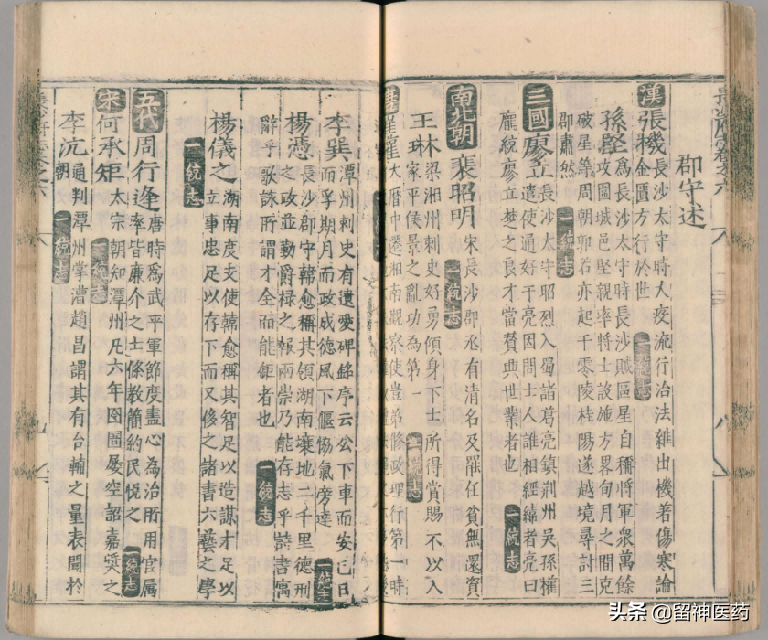 郡守述
漢張機長沙太守時大疫流行治法雜出機若傷寒論
金匱方行於世
孫堅為長沙太守時長沙賊區星自稱將軍衆萬餘
攻圍城邑堅親率將士設施方畧旬月之間克
破星等周朝郭石亦起于零陵桂陽遂越境尋討三
郡肅然一統志
三國廖立長沙太守昭烈入蜀諸葛亮鎮荆州吳孫權
遣使通好于亮因問士人誰相經緯者亮曰
龐統廖立楚之良才當贊興世業者也一統志
南北朝裴昭明宋長沙郡丞有清名及罷任貧無還資
一統志
王林梁湘州刺史好勇傾身下士所得賞賜不以入
家平侯景之亂功為第一
大曆中遷湖南觀察使豊第脩政理行第一時
李巽潭州刺史有遺愛碑銘序云公下車而安已日
而孚期月而政成德風下偃協氣旁達一統志
楊憑長沙郡守韓愈稱其領湖南壤地二千里德刑
之政並勤爵祿之報兩崇乃能存志乎詩書寓
辭乎歌詠所謂才全而能鉅者也一統志
楊儀之湖南度支使韓愈稱其智足以造謀才足以
立事忠足以存下而又侈之諸書六藝之學
一統志
五代周行逢唐時為武平軍節度盡心為治所用官属
率皆廉介之士條教簡約民悅之一統志
宋何承矩太宗朝知潭州凡六年囹圄屡空詔嘉奨之
一統志
李沆通判潭州掌漕趙昌謂其有台輔之量表聞於
朝一統志
头条 @留神医药